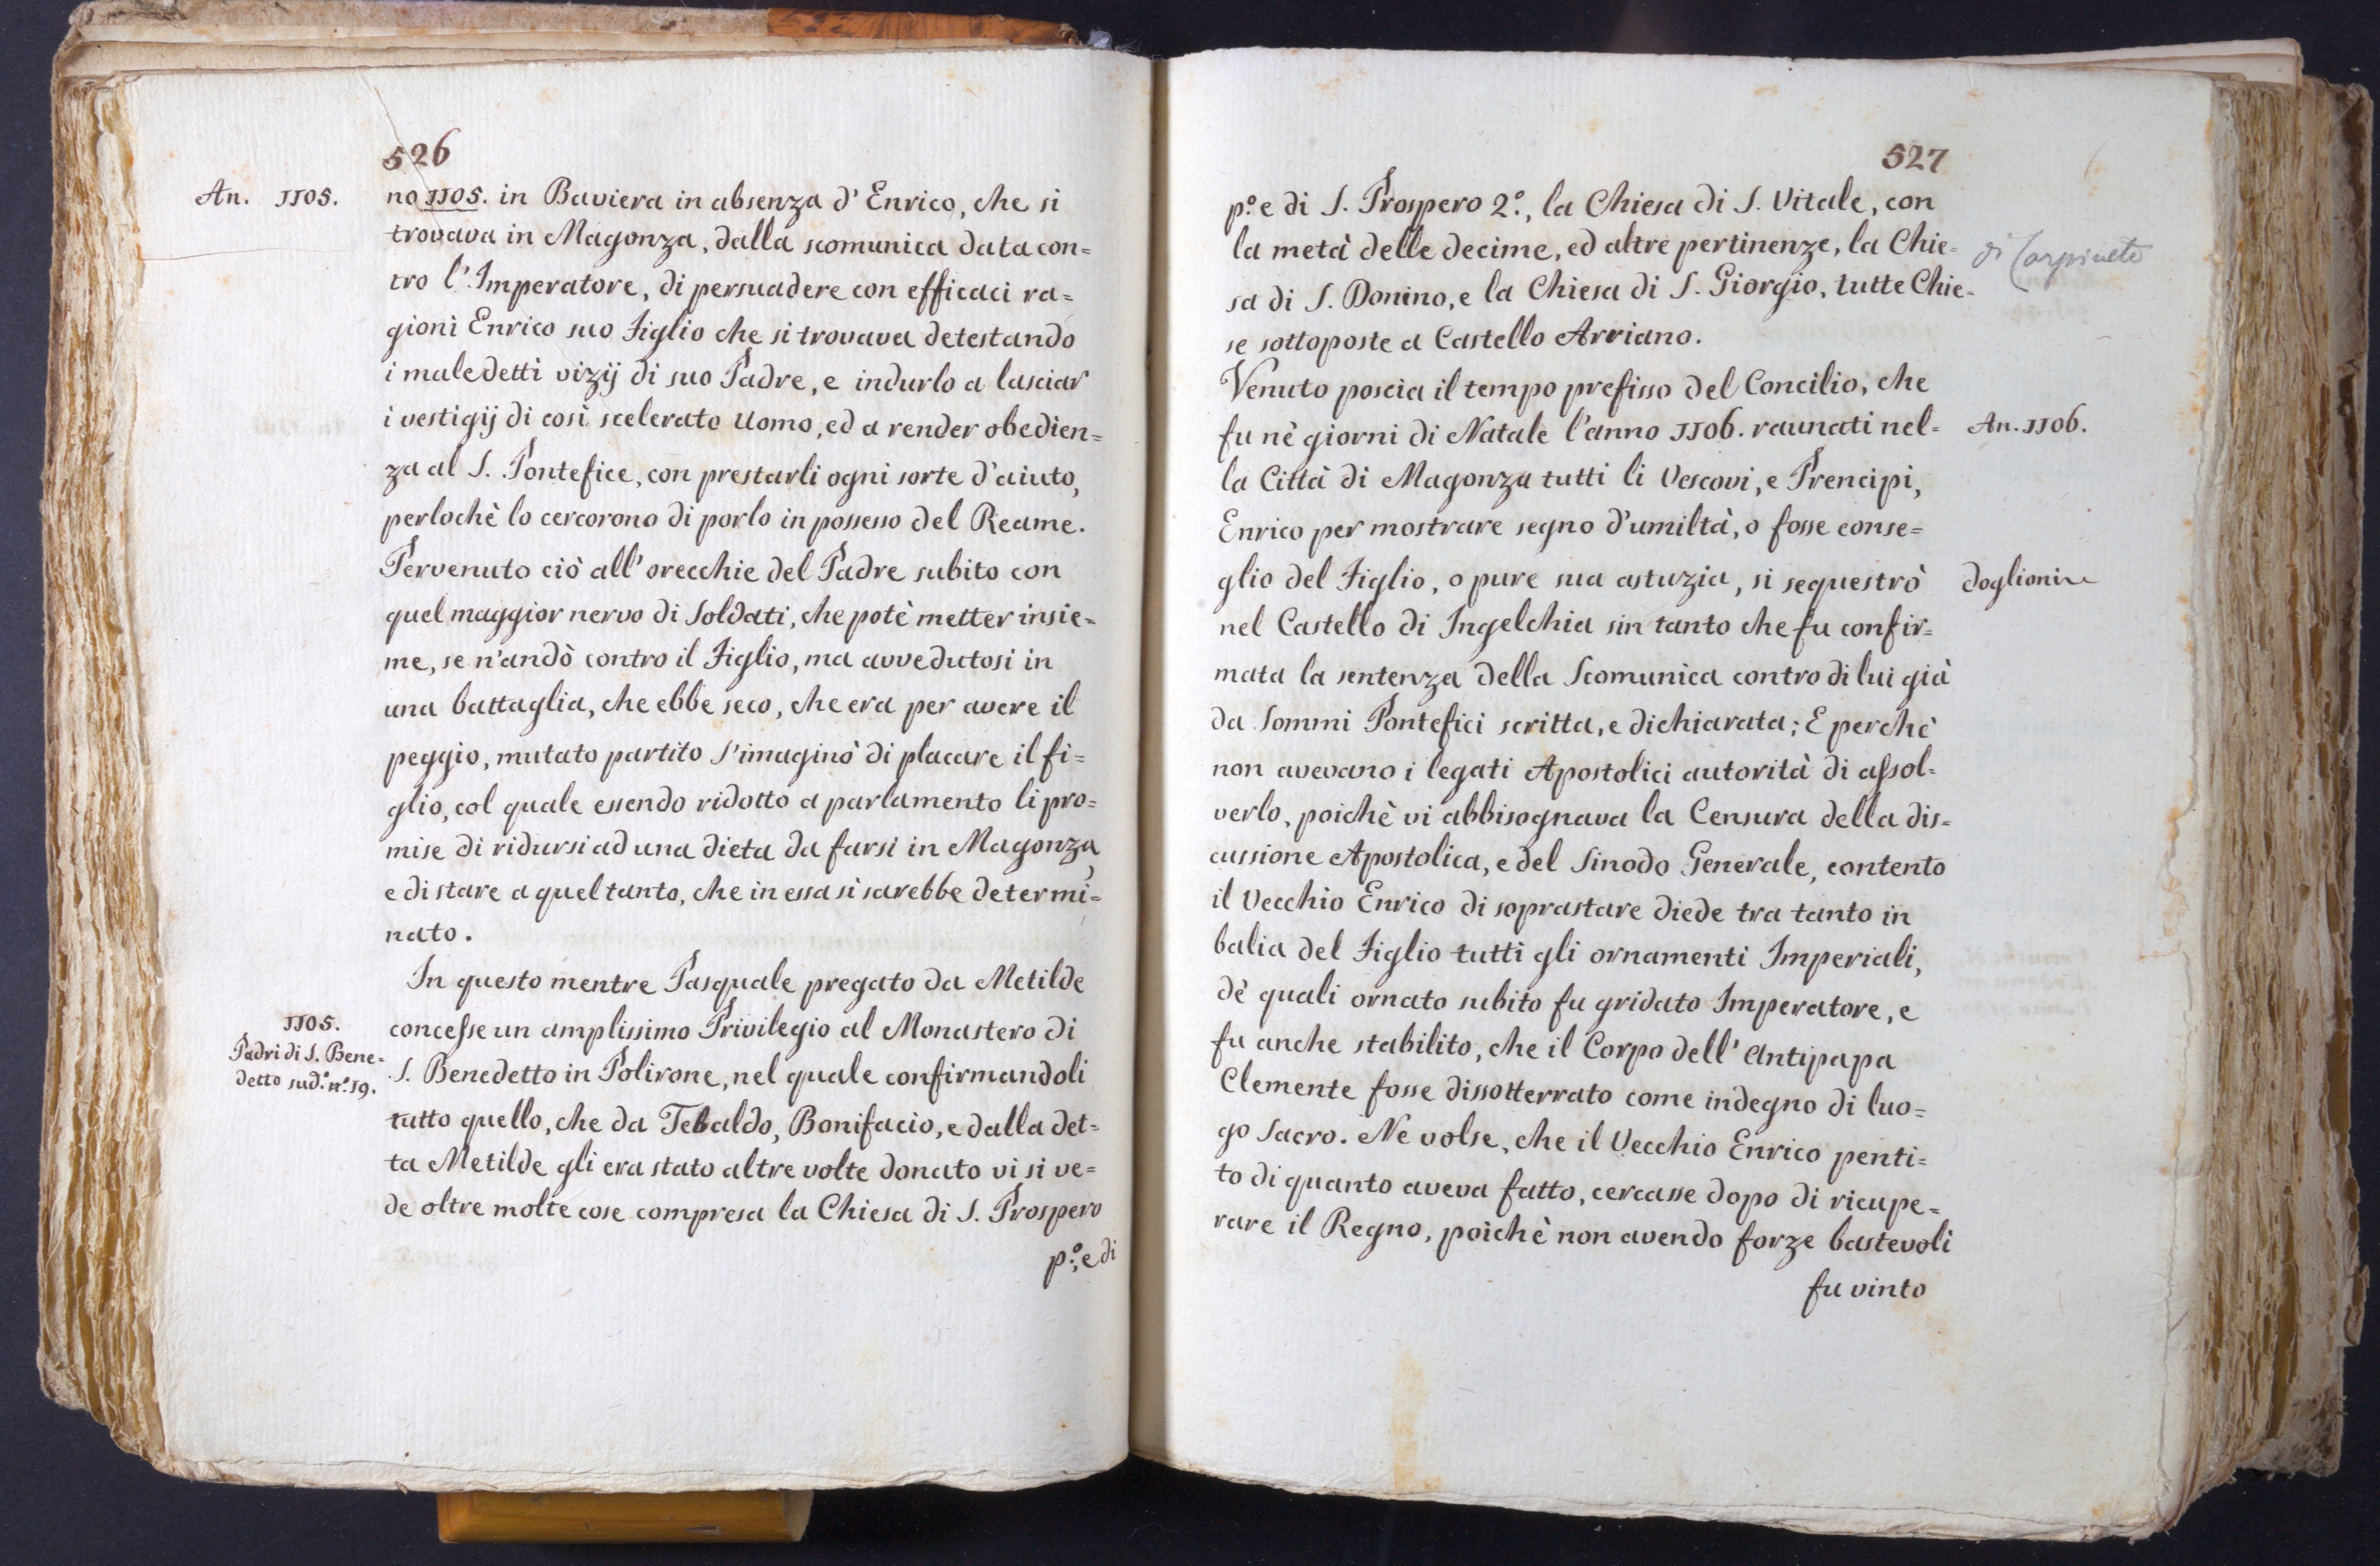 526
An. 1105.
no 1105. in Baviera in absenza d' Enrico, che si
trovava in Magonza, dalla scomunica data con=
tro l' Imperatore, di persuadere con efficaci ra=
gioni Enrico suo Figlio che si trovava detestando
i maledetti vizij di suo Padre, e indurlo a lasciar
i vestigij di così scelerato Uomo, ed a render obedien=
za al S. Pontefice, con prestarli ogni sorte d'aiuto,
perlochè lo cercorono di porlo in possesso del Reame.
Pervenuto ciò all' orecchie del Padre subito con
quel maggior nervo di Soldati, che potè metter insie=
me, se n'andò contro il Figlio, ma avvedutosi in
una battaglia, che ebbe seco, che era per avere il
peggio, mutato partito s'imaginò di placare il fi=
glio, col quale essendo ridotto a parlamento li pro=
mise di ridursi ad una dieta da farsi in Magonza,
e di stare a quel tanto, che in essa si sarebbe determi=
nato.
In questo mentre Pasquale pregato da Metilde
1105.
Padri di S. Bene=
detto sud.º n.º 19.
concesse un amplissimo Privilegio al Monastero di
S. Benedetto in Polirone, nel quale confirmandoli
tutto quello, che da Tebaldo, Bonifacio, e dalla det=
ta Metilde gli era stato altre volte donato vi si ve=
de oltre molte cose compresa la Chiesa di S. Prospero
p.º, e di
527
p.º e di S. Prospero 2.º, la Chiesa di S. Vitale, con
la metà delle decime, ed altre pertinenze, la Chie=
di Carpineto
sa di S. Donino, e la Chiesa di S. Giorgio, tutte Chie=
se sottoposte a Castello Arriano.
Venuto poscia il tempo prefisso del Concilio, che
fu nè giorni di Natale l'anno 1106. raunati nel=
An. 1106.
la Città di Magonza tutti li Vescovi, e Prencipi,
Enrico per mostrare segno d'umiltà, o fosse conse=
glio del Figlio, o pure sua astuzia, si sequestrò
Doglioni
nel Castello di Ingelchia sin tanto che fu confir=
mata la sentenza della Scomunica contro di lui già
da Sommi Pontefici scritta, e dichiarata; E perchè
non avevano i legati Apostolici autorità di assol=
verlo, poichè vi abbisognava la Censura della dis=
cussione Apostolica, e del Sinodo Generale, contento
il Vecchio Enrico di soprastare diede tra tanto in
balia del Figlio tutti gli ornamenti Imperiali,
dè quali ornato subito fu gridato Imperatore, e
fu anche stabilito, che il Corpo dell' Antipapa
Clemente fosse dissotterrato come indegno di luo=
go Sacro. Ne volse, che il Vecchio Enrico penti=
to di quanto aveva fatto, cercasse dopo di ricupe=
rare il Regno, poichè non avendo forze bastevoli
fu vinto